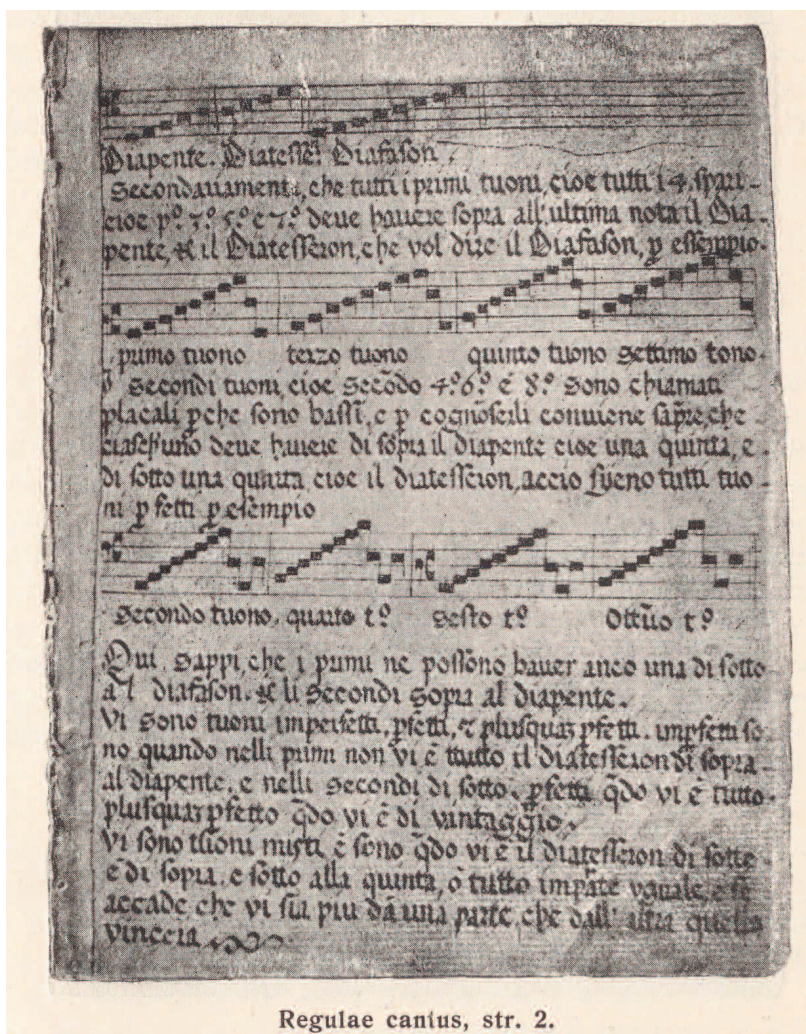 Diapente. Diatesse: Diafason.
Secondariamente, che tutti i primi tuoni, cioe tutti i 4. spari-
cioe pº. 3º. 5º. e 7º. deue hauere sopra all'ultima nota il Dia-
pente, & il Diatesseron, che vol dire il Diafason, p essempio.
primo tuono terzo tuono quinto tuono Settimo tono.
Secondi tuoni, cioe Secõdo 4º. 6º. e 8º. Sono chiamati
placali pche sono bassi, e p cognoscili conuiene sap̃re, che
ciasch'uno deue hauere di sopra il diapente cioe una quinta, e
di sotto una quarta cioe il diatesseron, accio sieno tutti tuo-
ni pfetti p esempio
Secondo tuono. quarto tº. Sesto tº. Ottuo tº.
Qui Sappi, che i primi ne possono hauer anco una di sotto
al diafason. & li Secondi Sopra al diapente.
Vi Sono tuoni imperfetti, pfetti, & plusquaz pfetti. impfetti so
no quando nelli primi non vi è tutto il diatesseron di sopra
al diapente, e nelli Secondi di sotto. pfetti q̃do vi è tutto.
plusquaz pfetto q̃do vi è di vantaggio.
Vi sono tuoni misti, è sono q̃do vi è il diatesseron di sotto
e di sopra, e sotto alla quinta, ò tutto impãte uguale, e se
accade, che vi sia piu dã una parte, che dall'altra quella
vinccia.
Regulae cantus, str. 2.